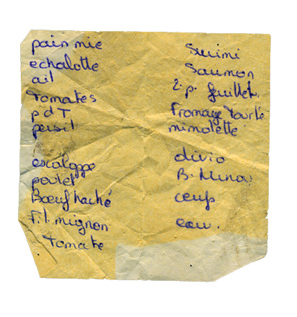 pain mie
echalotte
ail
Tomates
p d T
persil
escaloppe
poulet
Boeuf haché
F.l. mignon
Tomate
Surimi
Saumon
2. p. feuillet.
Fromage Tourte
mimolette
divio
B. Minou
oeufs
eau.